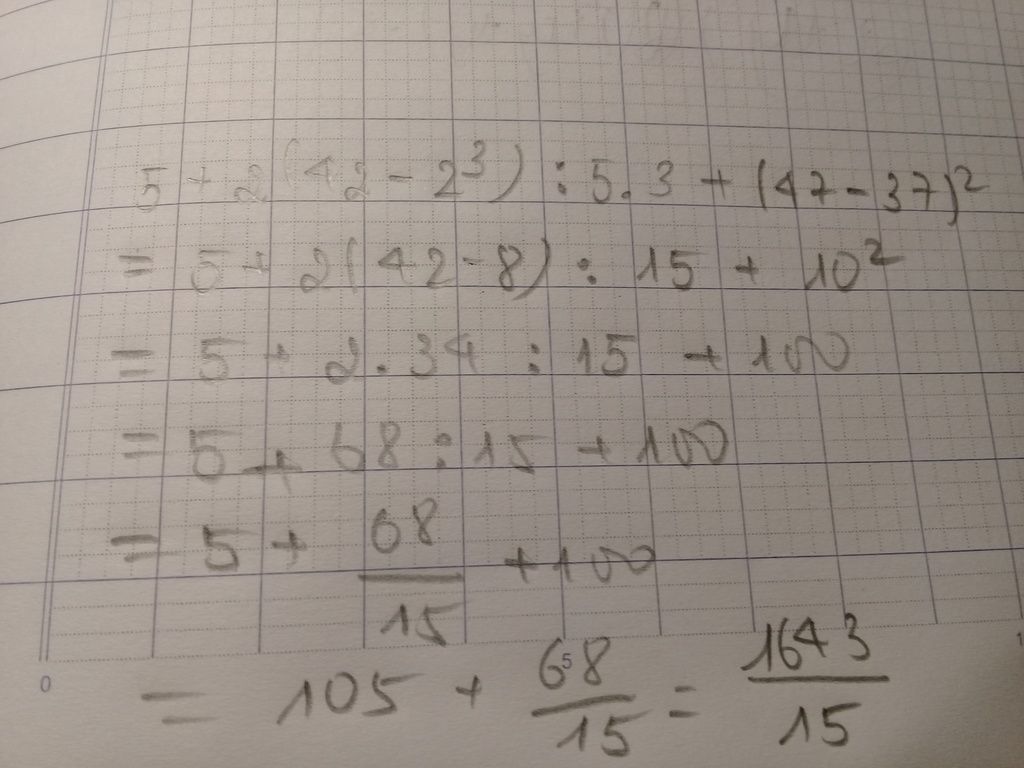 5 + 2(42 - 2³) : 5.3 + (47 - 37)²
= 5 + 2(42 - 8) : 15 + 10²
= 5 + 2.34 : 15 + 100
= 5 + 68 : 15 + 100
= 5 + 68/15 + 100
= 105 + 68/15 = 1643/15
0 5 1